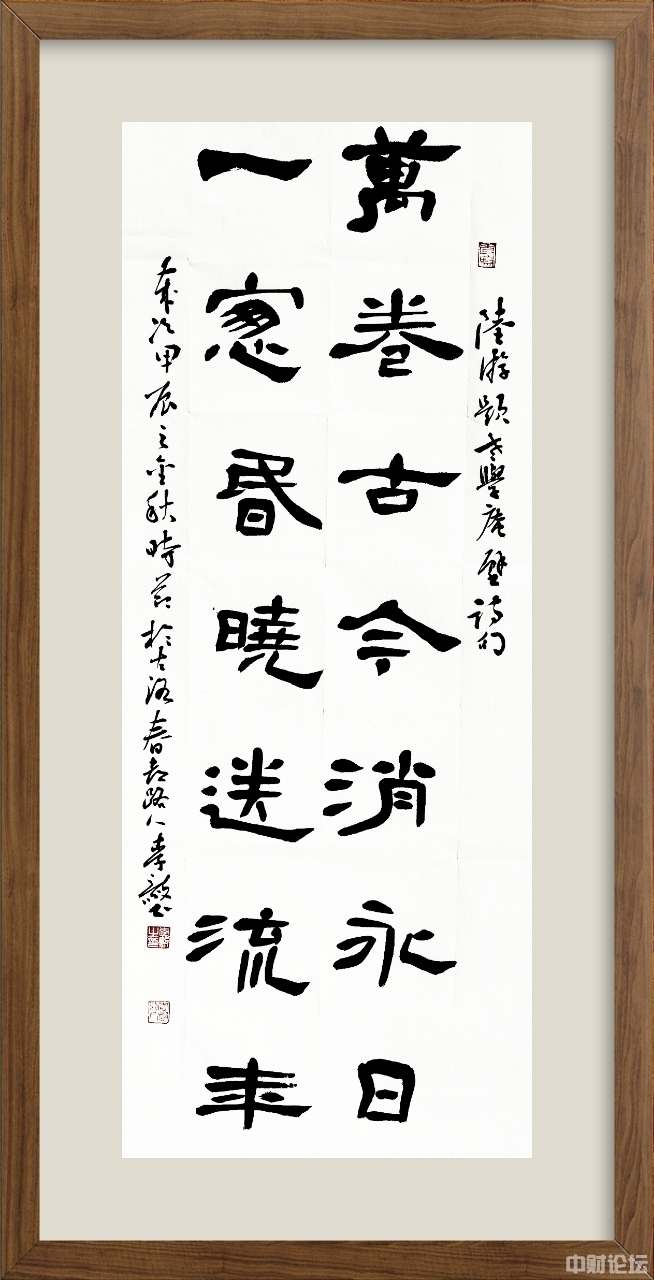 陸游題老學庵壁詩句
萬卷古今消永日
一窓昏曉送流年
歲次甲辰之金秋時節於古洛春都路人李
中财论坛